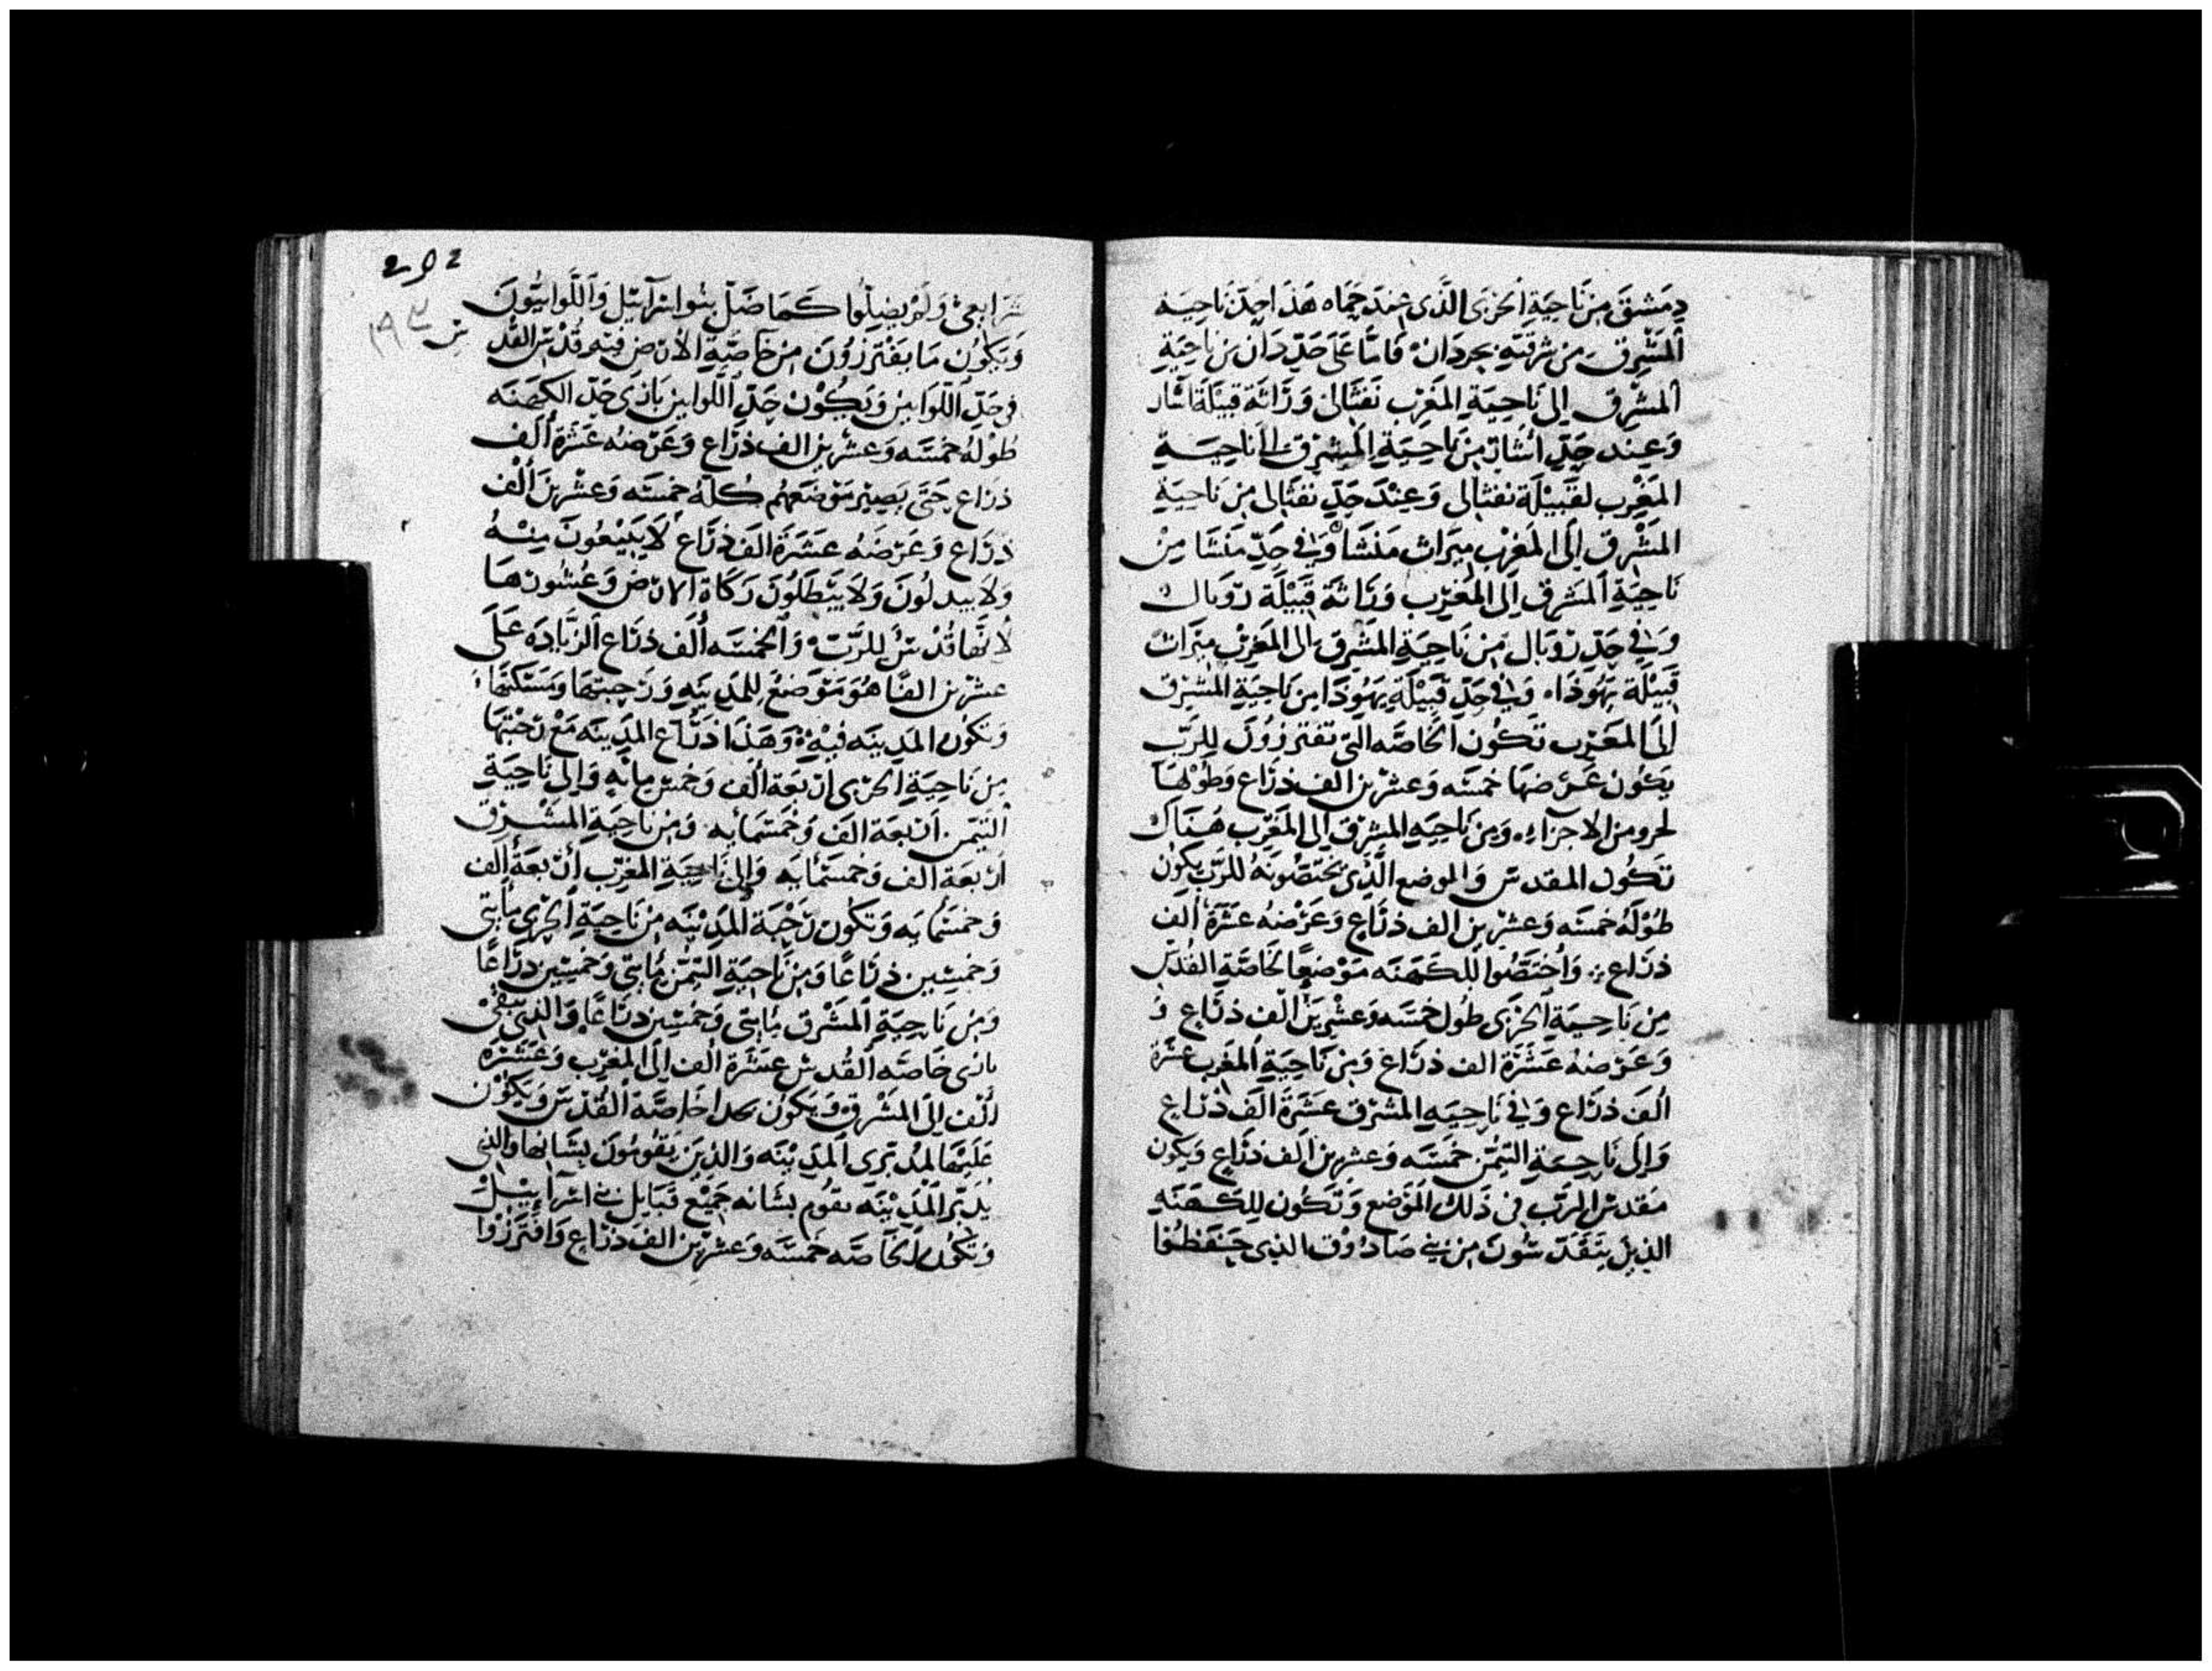 دِمَشقَ مِن نَاحِيَةِ الجَرْبَى الَّذى عِندَ حَمَاه هَذَا حِدّ نَاحِيَة
المَشْرِق مِن شرقيّهِ بحردَان فَامّا عَلَى حَدّ دَان مِن نَاحِيَةِ
المشْرِق إلى نَاحِيَةِ المَغرِب نَفتَالى وَرَاثَة قَبِيلَة اشار
وَعِند حَدّ اشَار مِن نَاحِيَةِ المشرِق إلى نَاحِيَة
المَغْرِب لقَبِيْلَة نفتالى وَعِنْدَ حَدّ نفتَالى مِن نَاحِيَةِ
المَشْرِق إلَى المَغرِب مِيرَاث مَنَسَّا وَفى حَدّ مَنَسَّا مِن
نَاحِيَةِ المَشرِق إلَى المُغرِب وَرَاثَة قَبِيْلَة رُوبَال
وَفى حَدّ رُوبَال مِن نَاحِيَةِ المَشرِق الى المَغرِب مِيرَاث
قَبِيْلَة يَهُوذَا وَفى حَدّ قَبِيْلَةِ يَهُوذَا مِن نَاحِيَةِ المشرِق
إلَى المَغرِب تَكُون الخَاصّه التى تفترزُونَ للرَّب
يَكُون عَرضهَا خمسَه وَعشرِين الف ذرَاع وَطُوْلهَا
لحرو من الاجزاء وَمِن نَاحِيَه المشرِق إلى المَغرِب هُنَاك
تَكُون المقدس وَالموضع الَّذى تختصُونهُ للرَّب يكون
طُوْلَهُ خمسَه وَعشرِين الف ذرَاع وَعَرْضهُ عشَرَة الف
ذرَاع وَاُختَصُّوا للكَهَنَه مَوْضعًا لخاصّةِ القُدْس
مِن نَاحِيَةِ الجَرْبَى طُول خمسَه وَعشْرِين الف ذرَاع وَ
وَعَرْضهُ عَشَرَة الف ذرَاع وَمِن نَاحِيَةِ المَغرِب عشَرَة
الف ذرَاع وَفى نَاحِيَهِ المشرِق عَشَرَة الَف ذرَاع
وَإلَى نَاحِيَةِ التيْمَن خَمسَه وَعشرِين الف ذرَاع وَيكون
مَقدس الرَّب فى ذَلك المَوضع وَتَكُون للِكَهَنَهِ
الذِينَ يتَقَدّسُونَ مِن بنى صَادُوق الذى حَفظُوا

292
١٩٢
شرَايعى وَلَمْ يضِلّوا كَمَا ضَلّ بنُوا اسْرَآئيل وَاللَّوانيّونَ
وَيَكون مَا يفْترزُونَ مِن خآصّيَةِ الأرض فيْه قُدْس القُد
س
فى حَدّ اللّوَايين وَيَكُوْن حَدّ اللّوَايين بَاذى حَد الكهَنَه
طُوْلهُ خمسَه وَعشرِين الف ذرَاع وَعَرْضهُ عَشَرَة الف
ذرَاع حَتَّى يَصِيْر مَوْضعهُم كُلّهُ خمسَه وَعشْرِينَ الْف
ذرَاع وَعَرْضهُ عَشَرَة الف ذرَاع لَا يَبيْعُونَ مِنْهُ
وَلَا يبدلُونَ وَلَا يبَطلُونَ زكَاة الارض وَعُشُورَهَا
لأنّهَا قُدْس للرَّب وَالخمسَه الَف ذرَاع الزيَّادَه عَلَى
عشرِين الفًا هُوَ مَوضعُ لِلمَدِينَه وَرَحبتهَا وَمَسَكنهَا
وَتكُون المَدِينَه فيْه وَهَذَا ذرَاع المَدِينَه مَع رَحبتهَا
مِن نَاحِيَةِ الجرْبى ارْبعَة الف وَخمسْ مِائَه وَإلى نَاحِيَةِ
التَيْمَن اَرْبعَة الَف وَخَمسْمايه وَمِن نَاحِيَةِ المَشْرِق
ارْبعَة الف وَخمسَمايه وَإلى نَاحِيَةِ المغرِب ارْبعَة الف
وَخمسَمايه وَتكُون رَحْبَة المَدِيْنَه مِن نَاحِيَةِ الجَرْبى مايتى
وَخمْسِين ذرَاعًا وَمِن نَاحِيَةِ التيْمَن مايتى وَخمسِين ذرَاعًا
وَمِن نَاحِيَةِ المَشْرِق مايتى وَخمْسِين ذرَاعًا وَالذى يبقى
باذى خاصّه القُدس عشَرَة الف إلى المغرِب وَعَشَرَة
الف إلَى المَشرِق وَيَكون بحدا خَاصَّة القُدْس وَيَكُوْن
عَليْهَا لمُدبّرى المدِيْنَه وَالذِينَ يَقُومُونَ بشَانهَا وَالذى
يُدَبّر المَدِيْنَه يقُوم بشَانه جَمِيْع قبَايل بنى اسْرآئيل
وَتَكُون الخاصّه خمسَه وَعشرِين الف ذرَاع وَافترزُوا